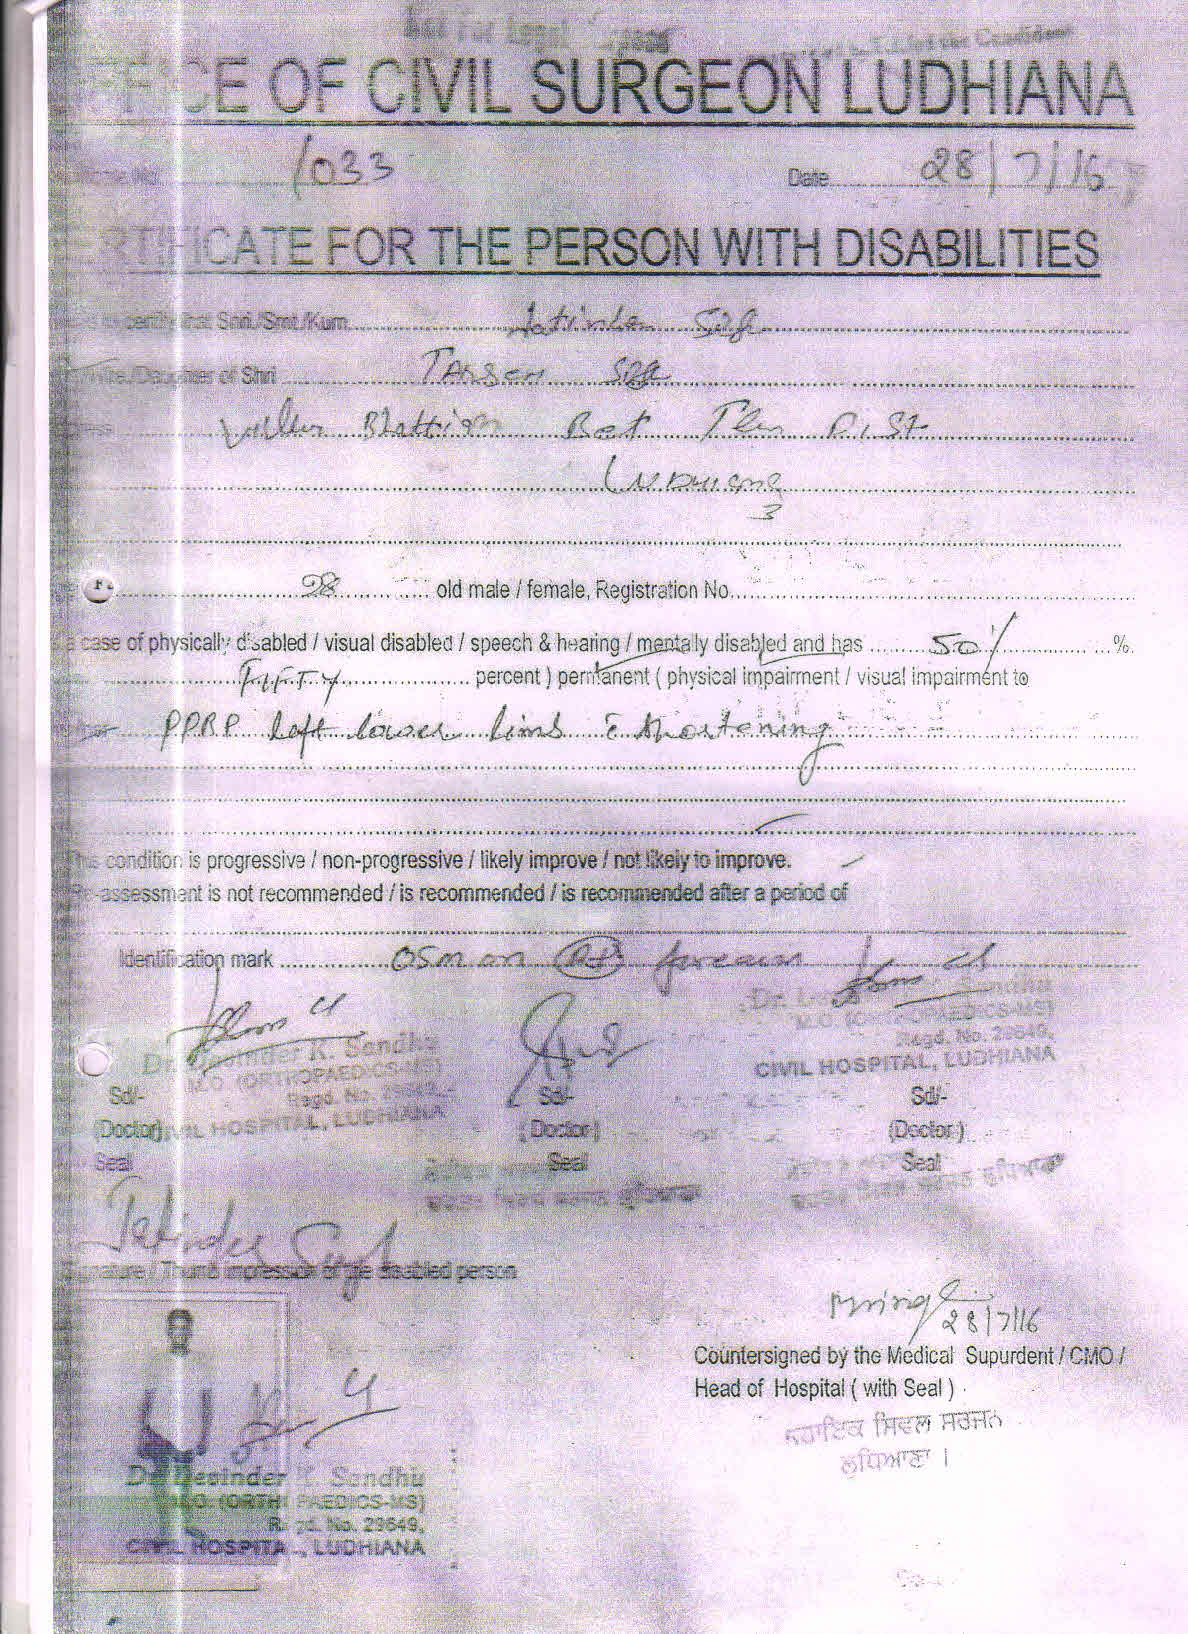 Not For Legal
OF CIVIL SURGEON LUDHIANA
1033
Date 28/7/16
CATE FOR THE PERSON WITH DISABILITIES
certify that Shri./Smt./Kum. Jatinder Singh
/Wife./Daughter of Shri Tarsem Singh
Bhattian Bet Distt
Ludhiana
3
28 old male / female, Registration No.
a case of physically disabled / visual disabled / speech & hearing / mentally disabled and has 50% %
FIFTY percent ) permanent ( physical impairment / visual impairment to
PPRP left lower limb c shortening
condition is progressive / non-progressive / likely improve / not likely to improve.
Re-assessment is not recommended / is recommended / is recommended after a period of
Identification mark OSM on Rt forearm
Dr. K. Sandhu
M.O. (ORTHOPAEDICS-MS)
Regd. No. 29649,
CIVIL HOSPITAL, LUDHIANA
Dr. Sandhu
M.O. (ORTHOPAEDICS-MS)
Regd. No. 29649,
CIVIL HOSPITAL, LUDHIANA
Sd/- Sd/- Sd/-
(Doctor) (Doctor) (Doctor)
Seal Seal Seal
ਲੁਧਿਆਣਾ ਲੁਧਿਆਣਾ
Jatinder Singh
Signature / Thumb impression of the disabled person
28/7/16
Countersigned by the Medical Supurdent / CMO /
Head of Hospital ( with Seal )
ਸਹਾਇਕ ਸਿਵਲ ਸਰਜਨ
ਲੁਧਿਆਣਾ ।
Dr. K. Sandhu
M.O. (ORTHOPAEDICS-MS)
Regd. No. 29649,
CIVIL HOSPITAL, LUDHIANA